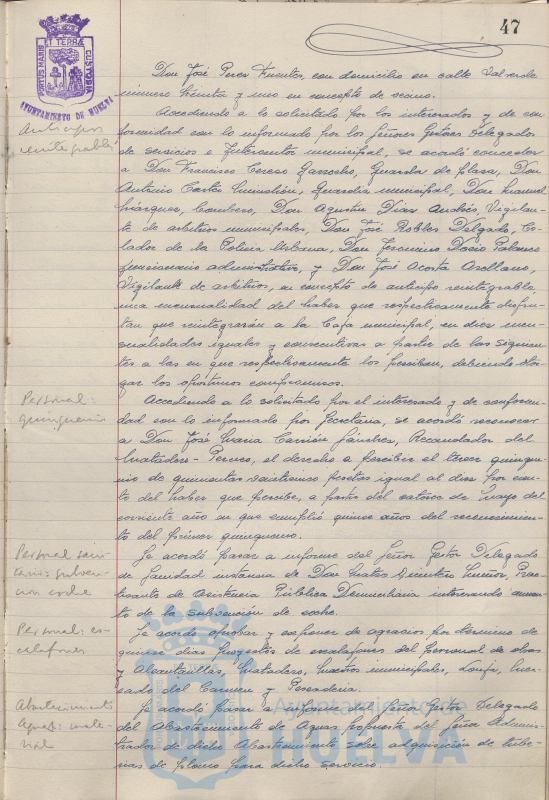 47
PORTUS MARIS ET TERRAE CUSTODIA
AYUNTAMIENTO DE HUELVA
Don José Perez Fuentes, con domicilio en calle Valverde
número treinta y uno en concepto de vecino.
Anticipos
reintegrables
Accediendo a lo solicitado por los interesados y de con-
formidad con lo informado por los Señores Gestores Delegados
de Servicios e Interventor municipal, se acordó conceder
a Don Francisco Cerejo Garrocho, Guarda de plaza, Don
Antonio Cortés, Guardia municipal, Don Manuel
Márquez, Bombero, Don Agustin Diaz Andrés, Vigilan-
te de arbitrios municipales, Don José Robles Delgado, Ce-
lador de la Policia Urbana, Don Jeronimo
funcionario administrativo, y Don José Acosta Arellano,
Vigilante de arbitrios, en concepto de anticipo reintegrable
una mensualidad del haber que respectivamente disfru-
tan que reintegrarán a la Caja municipal, en diez men-
sualidades iguales y consecutivas a partir de las siguien-
tes a las en que respectivamente las perciban, debiendo otor-
gar los oportunos compromisos.
Personal:
quinquenio
Accediendo a lo solicitado por el interesado y de conformi-
dad con lo informado por Secretaria, se acordó reconocer
a Don José Maria Carrión Sánchez, Recaudador del
Matadero, el derecho a percibir el tercer quinque-
nio de quinientas pesetas igual al diez por cien-
to del haber que percibe, a partir del catorce de Mayo del
corriente año en que cumplió quince años del reconocimien-
to del primer quinquenio.
Personal sani-
tario: subven-
cion coche
Se acordó pasar a informe del Señor Gestor Delegado
de Sanidad instancia de Don Matias Muñoz, Prac-
ticante de Asistencia Pública Domiciliaria interesando aumen-
to de la subvención de coche.
Personal: es-
calafones
Se acordó aprobar y exponer de agravios por término de
quince dias Proyectos de escalafones del Personal de obras
y Alcantarillas, Matadero, municipales, Lonja, Mer-
cado del Carmen y Pescaderia.
Abastecimiento
Aguas: mate-
rial
Se acordó pasar a informe del Señor Gestor Delegado
del Abastecimiento de Aguas propuesta del Señor Adminis-
trador de dicho Abastecimiento sobre adquisición de tube-
rias de plomo para dicho servicio.
Ayuntamiento de
HUELVA